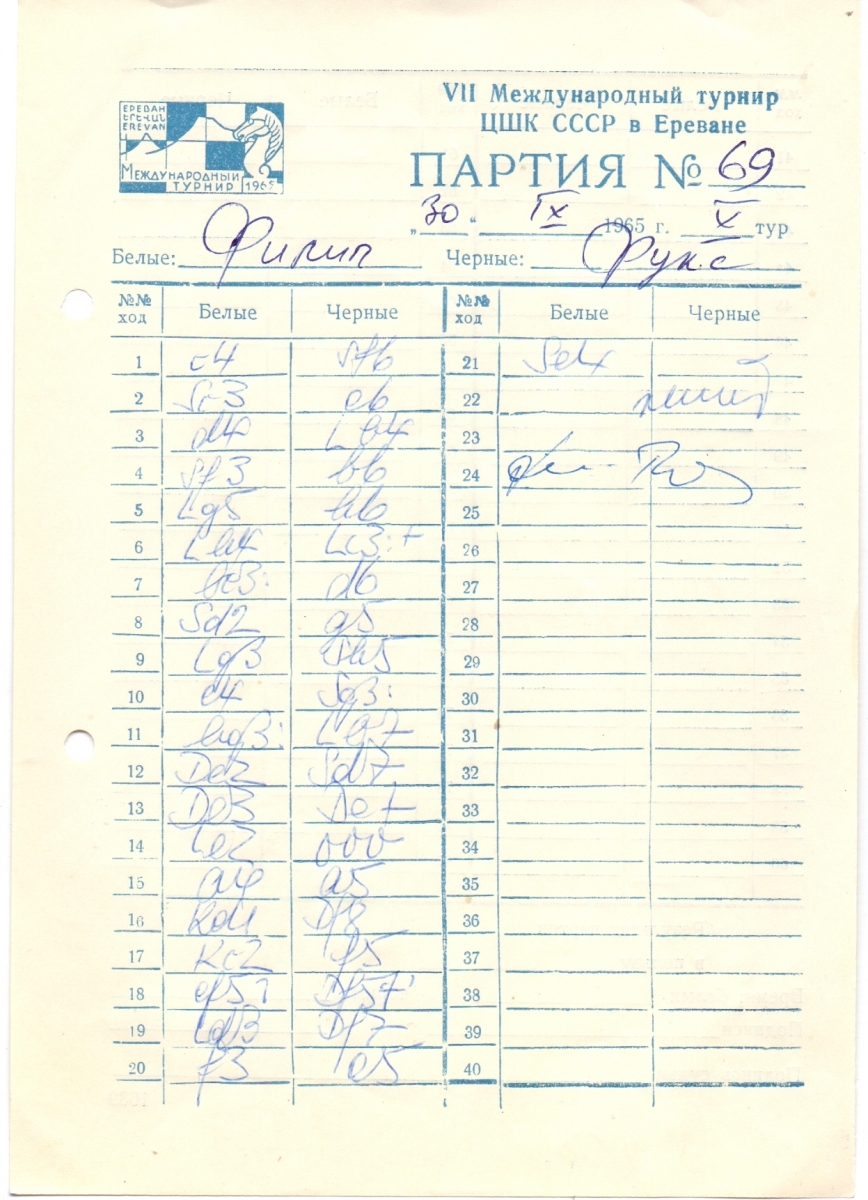 VII Международный турнир
ЦШК СССР в Ереване
ЕРЕВАН
ԵՐԵՎԱՆ
EREVAN
МЕЖДУНАРОДНЫЙ
ТУРНИР 1965
ПАРТИЯ № 69
„30“ IX 1965 г. X тур
Белые: Филип Черные: Фукс
№№ ход Белые Черные №№ ход Белые Черные
1 c4 Sf6 21 Se4
2 Sc3 e6 22
3 d4 Lb4 23
4 Sf3 b6 24
5 Lg5 h6 25
6 Lh4 Lc3:+ 26
7 bc3: d6 27
8 Sd2 g5 28
9 Lg3 Sh5 29
10 e4 Sg3: 30
11 hg3: Lb7 31
12 Dc2 Sd7 32
13 De3 De7 33
14 Le2 000 34
15 a4 a5 35
16 Kd1 Df8 36
17 Kc2 f5 37
18 ef5: Df5:+ 38
19 Ld3 Df7 39
20 f3 e5 40